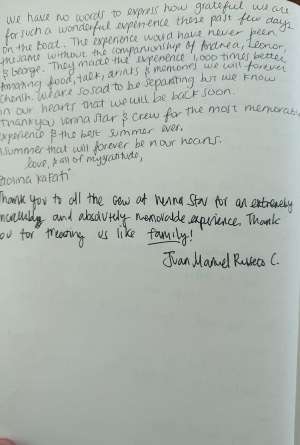 We have no words to express how grateful we are
for such a wonderful experience these past few days
on the boat. The experience would have never been
the same without the companionship of Andrea, Leonor,
& George. They made the experience 1,000 times better
Amazing food, talk, drinks & memories we will forever
cherish. We are so sad to be separating but we know
in our hearts that we will be back soon.
Thank you Star & crew for the most memorable
experience & the best summer ever.
A summer that will forever be in our hearts.
love, & all of my gratitude,
Thank you to all the crew at Star for an extremely
incredibly and absolutely memorable experience. Thank
you for treating us like family!
Juan Manuel C.